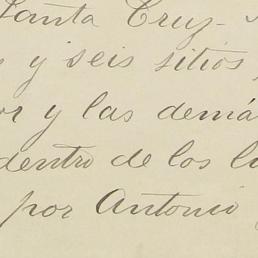 Santa Cruz-
y seis sitios
or y las demá
dentro de los l
por Antonio